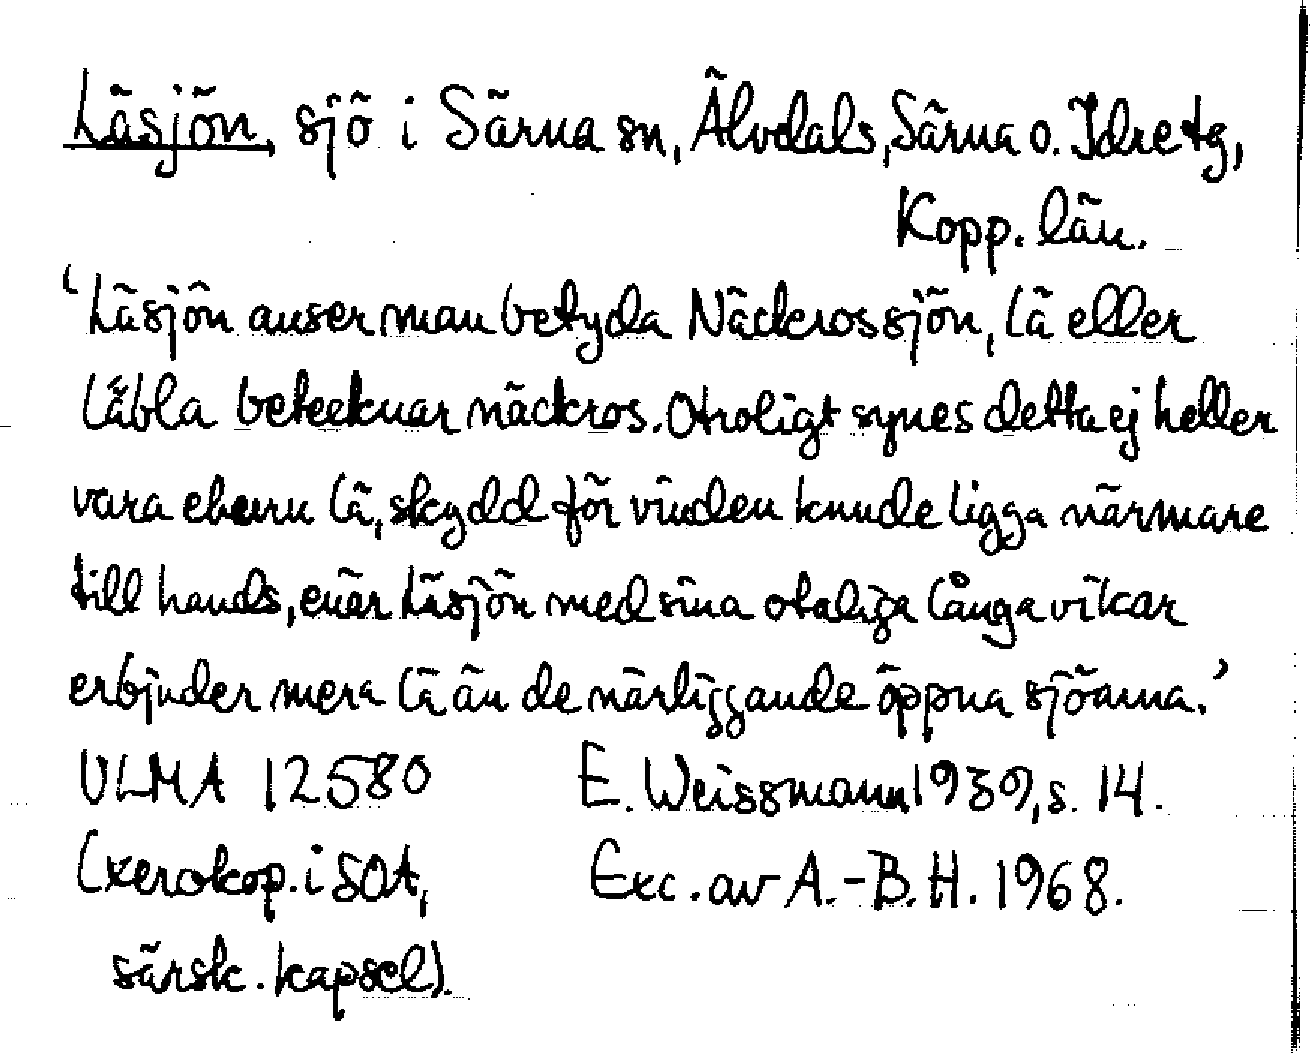 Läsjön, sjö i Särna sn, Älvdals, Särna o. Idre tg,
Kopp. län.
'Läsjön anser man betyda Näckrossjön, lä eller
läbla betecknar näckros. Otroligt synes detta ej heller
vara ehuru lä, skydd för vinden kunde ligga närmare
till hands, enär Läsjön med sina otaliga långa vikar
erbjuder mera lä än de närliggande öppna sjöarna.'
ULMA 12580 E. Weissmann 1939, s. 14.
(xerokop. i SOA, Exc. av A.-B. H. 1968.
särsk. kapsel).